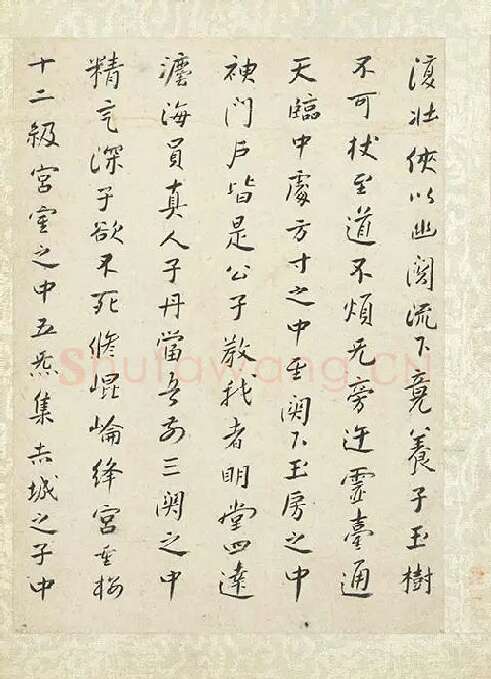 復壯俠以幽闕流下竟養子玉樹
不可杖至道不煩无旁迕靈臺通
天臨中處方寸之中至闕下玉房之中
神門戶皆是公子教我者明堂四達
瀍海員真人子丹當吾前三關之中
精气深子欲不死脩崐崘絳宮重樓
十二級宮室之中五炁集赤城之子中
Shufawang.CN